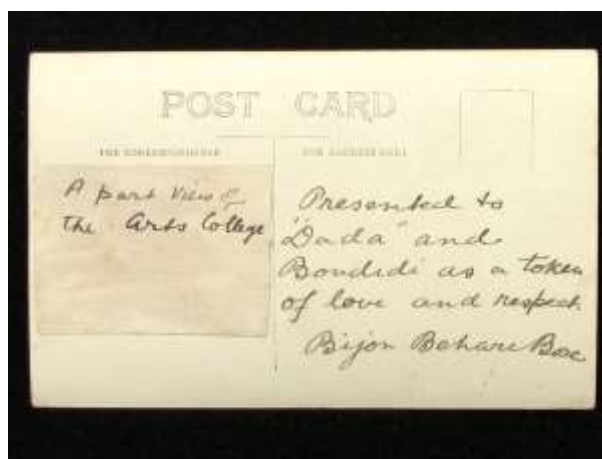 POST CARD
FOR CORRESPONDENCE
FOR ADDRESS ONLY
A part view of
the Arts College
Presented to
"Dada" and
Boudidi as a token
of love and respect.
Bijon Behari Bose